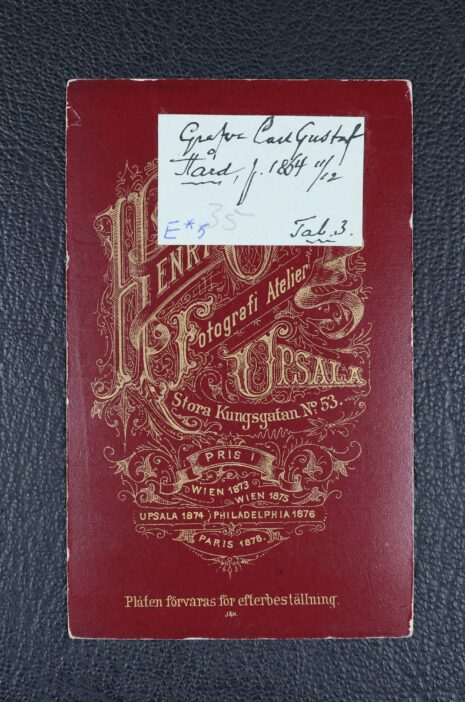 Grefve Carl Gustaf
Hård, f. 1864 11/12
35
E*5
Tab. 3.
HENRI
Fotografi Atelier
UPSALA
Stora Kungsgatan No. 53.
PRIS I
WIEN 1873
WIEN 1875
UPSALA 1874 PHILADELPHIA 1876
PARIS 1878.
Plåten förvaras för efterbeställning.